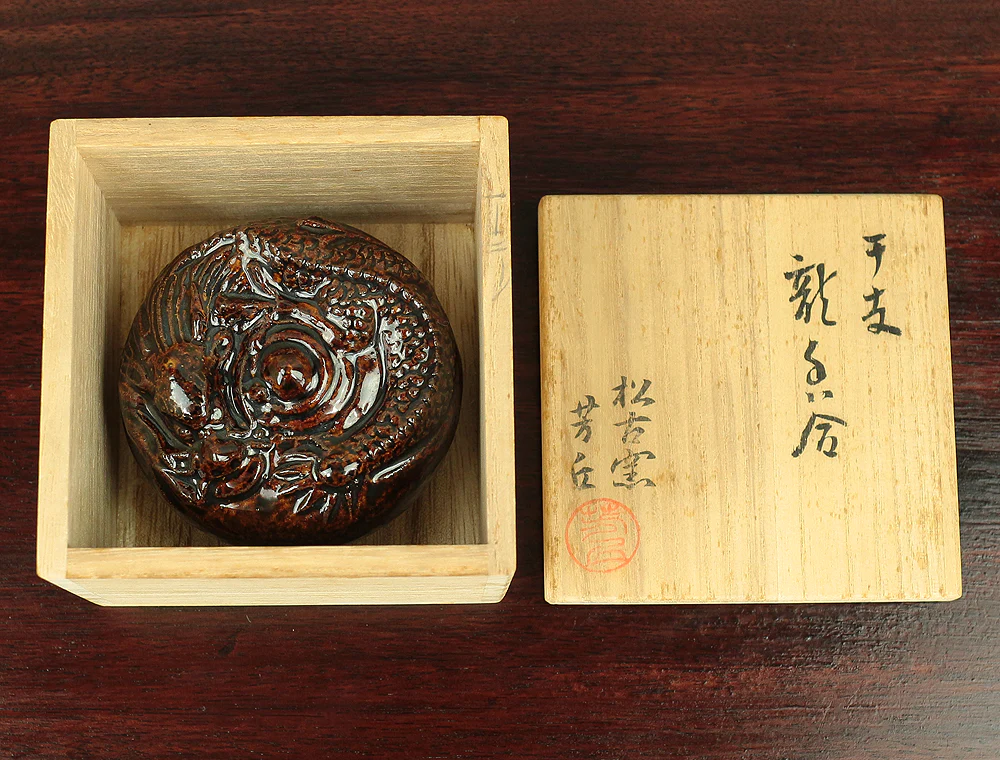 干支
龍香合
松古窯
芳丘